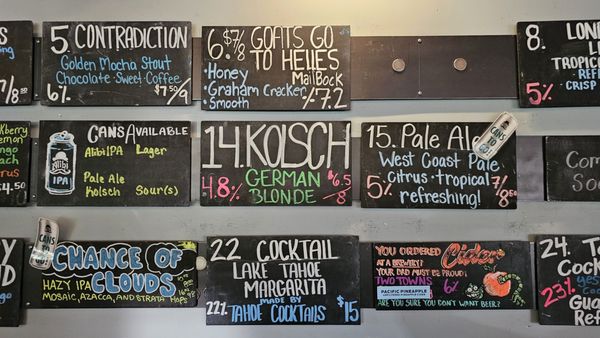 5. CONTRADICTION
Golden Mocha Stout
Chocolate Sweet Coffee
6%
$7.50/9
6. $7/8 GOATS GO
TO HELLES
• Honey
MaiBock
• Graham Cracker
• Smooth
7.2
8. LON
TROPIC
REF
CRISP
5%
7/8
CANS AVAILABLE
Alibi IPA Lager
Pale Ale
Kolsch Sour(s)
Alibi
IPA
14. KOLSCH
4.8% GERMAN
BLONDE
$6.5
8
15. Pale Al
CANS
TO GO
West Coast Pale
Citrus • tropical
5% refreshing!
7/
8.50
$4.50
Co
CHANCE OF
CLOUDS
HAZY IPA
MOSAIC, AZACCA, AND STRATA HOPS
22 COCKTAIL
LAKE TAHOE
MARGARITA
MADE BY
22% TAHOE COCKTAILS $15
YOU ORDERED Cider
AT A BREWERY?
YOUR DAD MUST BE PROUD!
TWO TOWNS 6%
PACIFIC PINEAPPLE
ARE YOU SURE YOU DON'T WANT BEER?
24. T
Cock
23%
Gua
Ref